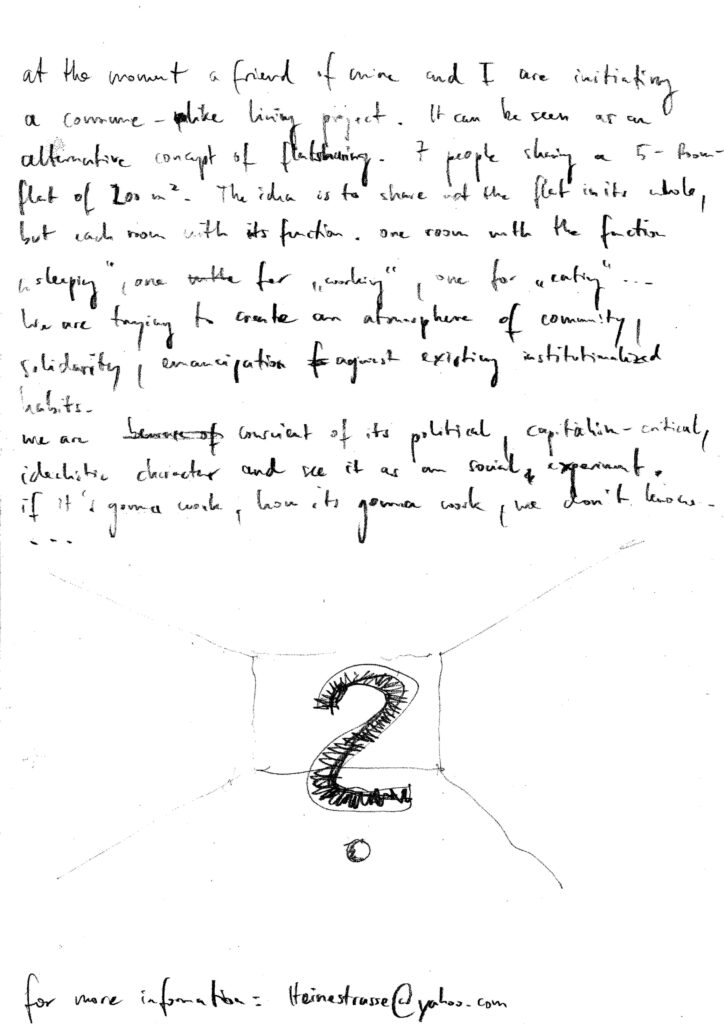 at the moment a friend of mine and I are initiating
a commune-like living project. It can be seen as an
alternative concept of flatsharing. 7 people sharing a 5-Room-
flat of 200 m². The idea is to share not the flat in its whole,
but each room with its function. one room with the function
„sleeping", one for „working", one for „eating"...
We are trying to create an atmosphere of community,
solidarity, emancipation against existing institutionalized
habits.
we are conscient of its political, capitalism-critical,
idealistic character and see it as an social experiment.
if it's gonna work, how its gonna work, we don't know.
...
?
for more information: Heinestrasse@yahoo.com